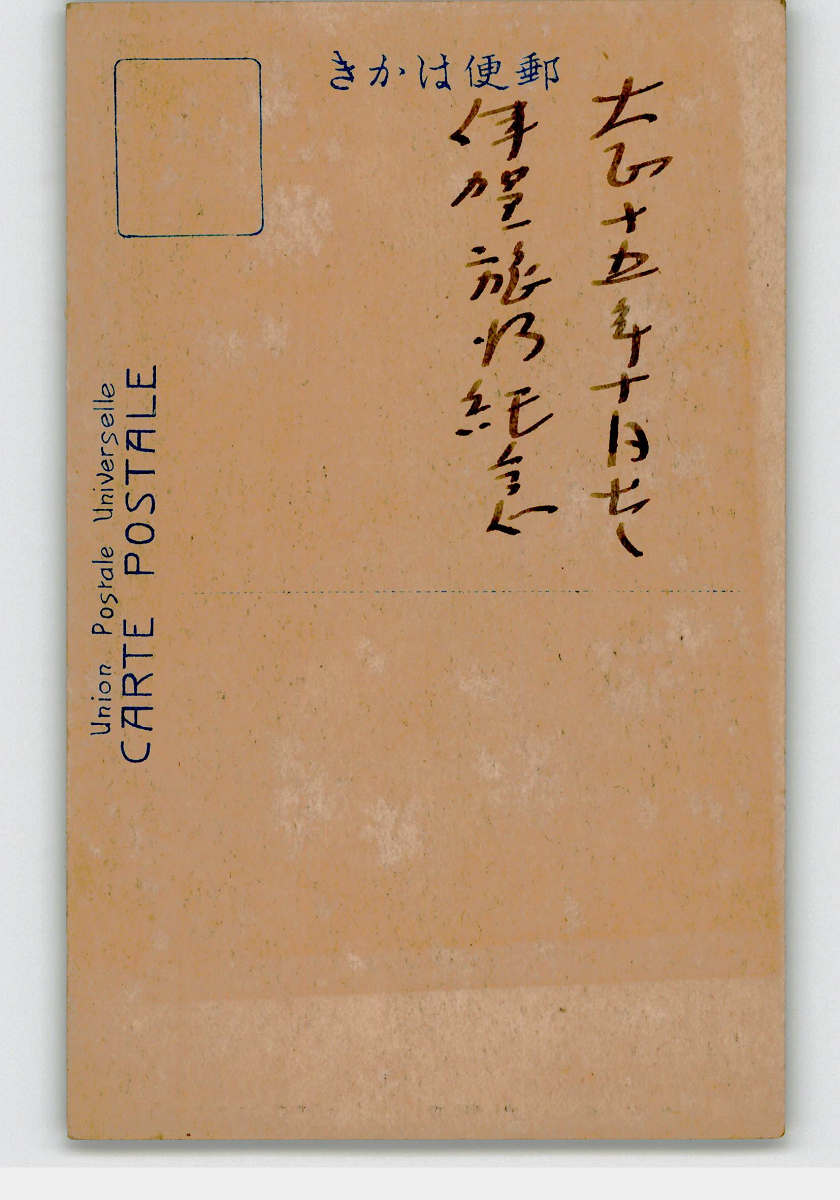 郵便はかき
大正十五年十月
伊賀旅行紀念
Union Postale Universelle
CARTE POSTALE